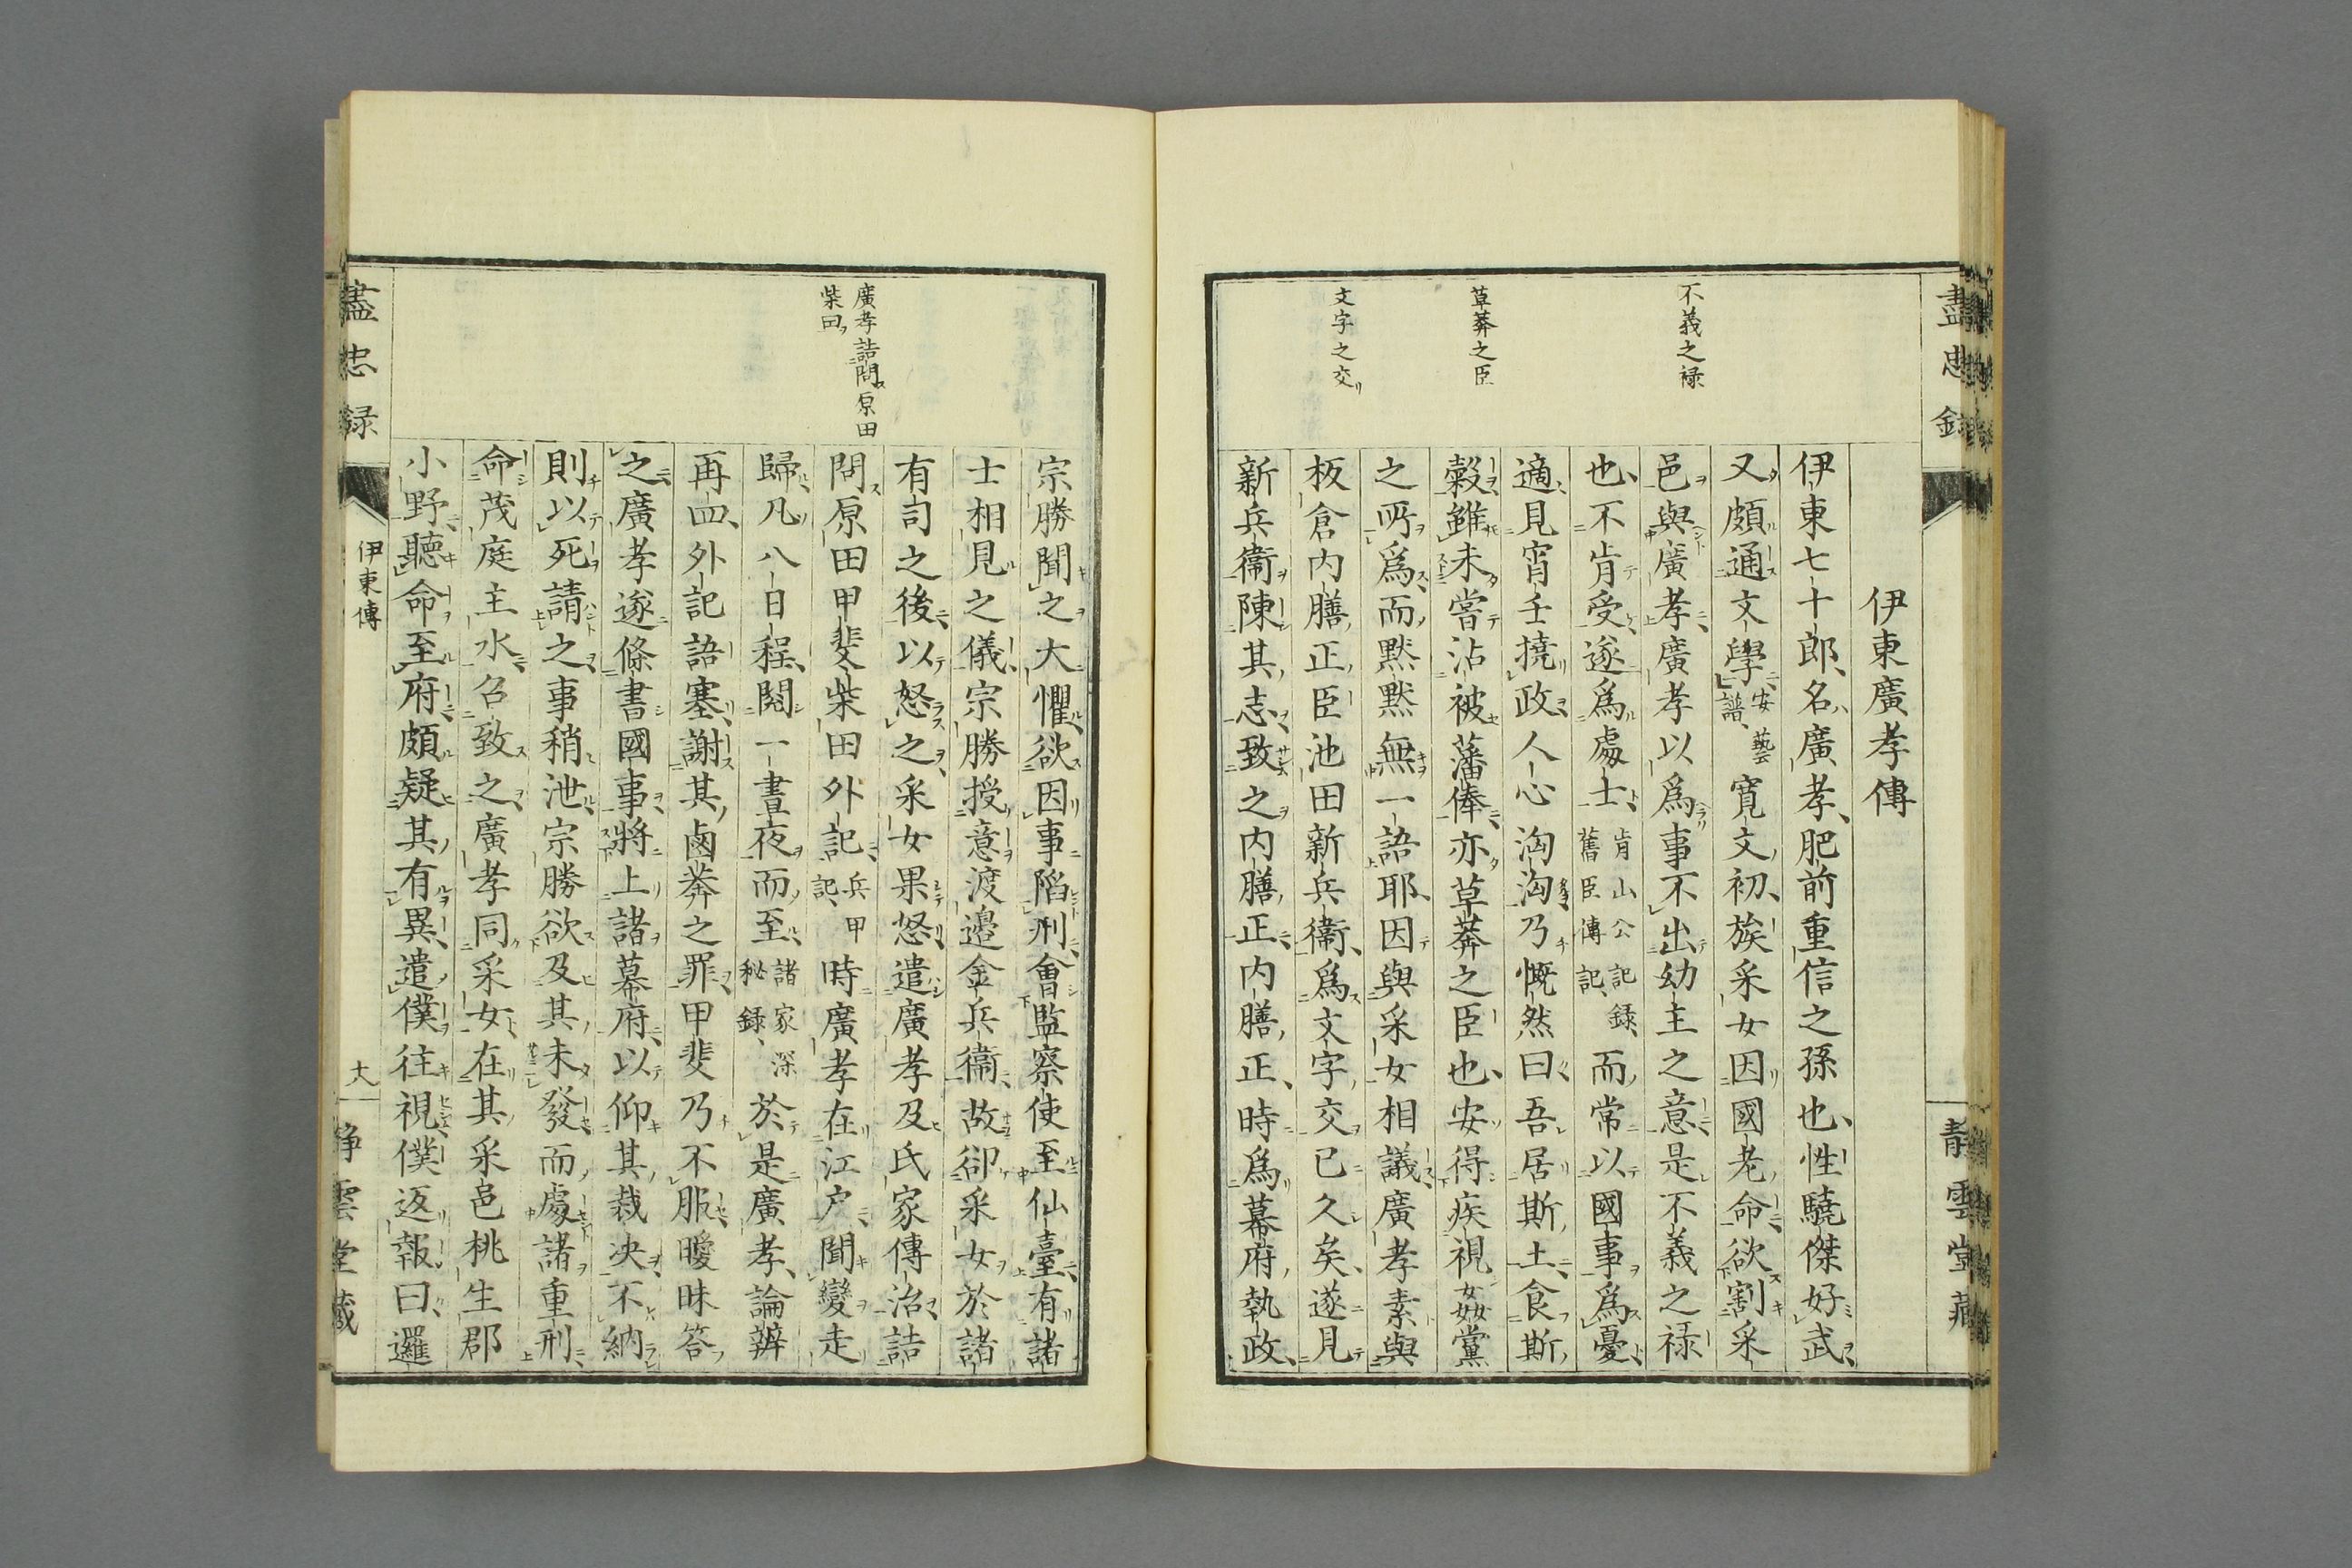 盡忠錄
靜雲堂藏
不義之禄
草莽之臣
文字之交
伊東廣孝傳
伊東七十郎名廣孝肥前重信之孫也性驍傑好武
又頗通文學安藝譜寛文初族采女因國老命欲割采
邑與廣孝廣孝以爲事不出幼主之意是不義之禄
也不肯受遂爲處士肯山公記録舊臣傳記而常以國事爲憂
適見宵壬撓政人心洶洶乃慨然曰吾居斯土食斯
穀雖未嘗沾被藩俸亦草莽之臣也安得疾視姦黨
之所爲而默默無一語耶因與采女相議廣孝素與
板倉内膳正臣池田新兵衞爲文字交已久矣遂見
新兵衞陳其志致之内膳正内膳正時爲幕府執政
廣孝詰問原田
柴田
宗勝聞之大懼欲因事陷刑會監察使至仙臺有諸
士相見之儀宗勝授意渡邉金兵衞故卻采女於諸
有司之後以怒之采女果怒遣廣孝及氏家傳治詰
問原田甲斐柴田外記兵甲記時廣孝在江户聞變走
歸凡八日程閲一晝夜而至諸家深秘録於是廣孝論辨
再四外記語塞謝其鹵莽之罪甲斐乃不服曖昧答
之廣孝遂條書國事將上諸幕府以仰其裁决不納
則以死請之事稍泄宗勝欲及其未發而處諸重刑
命茂庭主水召致之廣孝同采女在其采邑桃生郡
小野聽命至府頗疑其有異遣僕往視僕返報曰邏
盡忠録
伊東傳
十八
靜雲堂藏